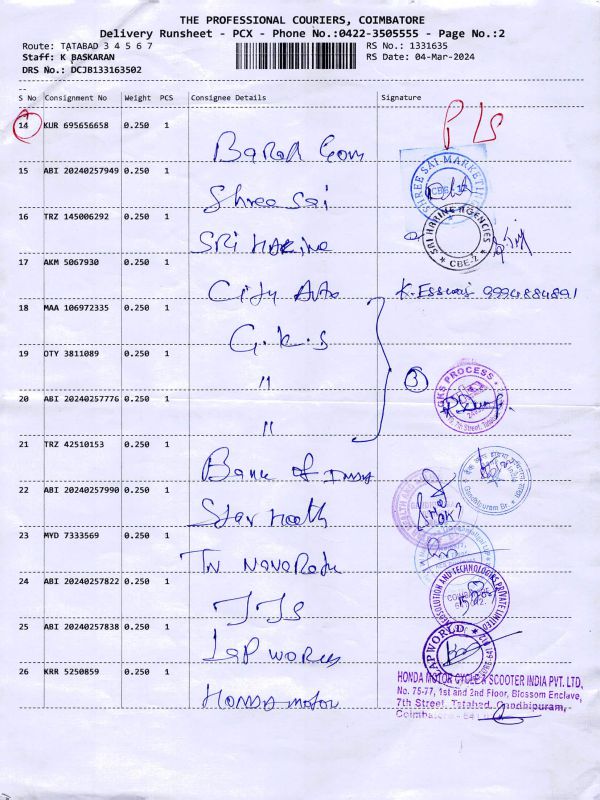 THE PROFESSIONAL COURIERS, COIMBATORE
Delivery Runsheet - PCX - Phone No.:0422-3505555 - Page No.:2
Route: TATABAD 3 4 5 6 7
RS No.: 1331635
Staff: K BASKARAN
RS Date: 04-Mar-2024
DRS No.: DCJB133163502
S No Consignment No Weight PCS Consignee Details Signature
14 KUR 695656658 0.250 1
15 ABI 20240257949 0.250 1 Shree Sai SHREE SAI MARKETING
16 TRZ 145006292 0.250 1 SRI HARINE SRI HARINE AGENCIES * CBE-2 *
17 AKM 5067930 0.250 1 City Auto 9994884891
18 MAA 106972335 0.250 1 G.K.S
19 OTY 3811089 0.250 1 " 3
20 ABI 20240257776 0.250 1 " GKS PROCESS
21 TRZ 42510153 0.250 1 Bank of India Gandhipuram Br.
22 ABI 20240257990 0.250 1 Star Health
23 MYD 7333569 0.250 1 TN
24 ABI 20240257822 0.250 1 SOLUTION AND TECHNOLOGIES PRIVATE LIMITED
25 ABI 20240257838 0.250 1 Lap World LAPWORLD
26 KRR 5250859 0.250 1 HONDA MOTOR
HONDA MOTOR CYCLE & SCOOTER INDIA PVT. LTD,
No. 75-77, 1st and 2nd Floor, Blossom Enclave,
7th Street, Tatabad, Gandhipuram,
Coimbatore - 641